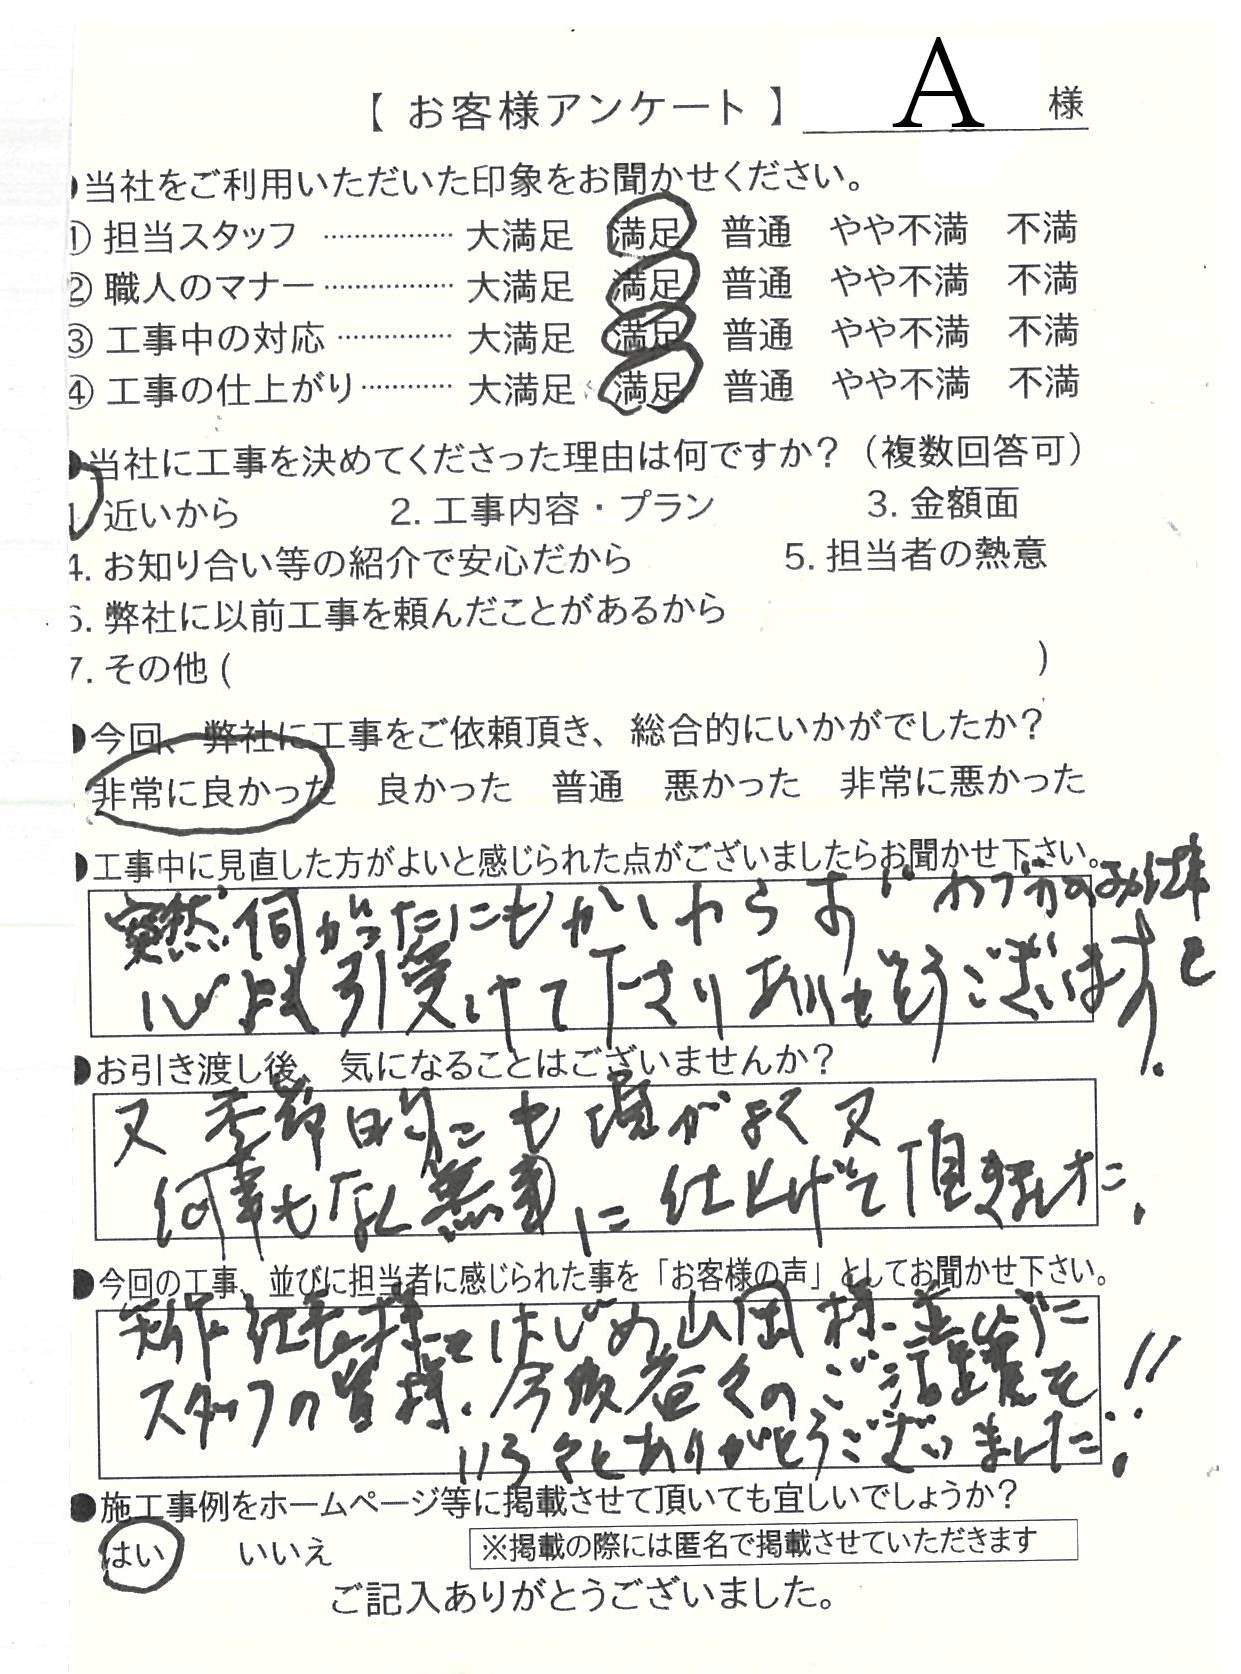 【 お客様アンケート 】 A 様
●当社をご利用いただいた印象をお聞かせください。
① 担当スタッフ ……………… 大満足 満足 普通 やや不満 不満
② 職人のマナー ……………… 大満足 満足 普通 やや不満 不満
③ 工事中の対応 …………… 大満足 満足 普通 やや不満 不満
④ 工事の仕上がり ………… 大満足 満足 普通 やや不満 不満
●当社に工事を決めてくださった理由は何ですか?（複数回答可）
1. 近いから 2. 工事内容・プラン 3. 金額面
4. お知り合い等の紹介で安心だから 5. 担当者の熱意
6. 弊社に以前工事を頼んだことがあるから
7. その他 ( )
●今回、弊社に工事をご依頼頂き、総合的にいかがでしたか?
非常に良かった 良かった 普通 悪かった 非常に悪かった
●工事中に見直した方がよいと感じられた点がございましたらお聞かせ下さい。
突然伺がったにもかいわらず わづかのみ仕事
心よく引受けて下さりありがとうございます
●お引き渡し後、気になることはございませんか?
又季節的にも がよく又
何事もなく無事に仕上げて頂きました.
●今回の工事、並びに担当者に感じられた事を「お客様の声」としてお聞かせ下さい。
社長様はじめ山岡様並びに
スタッフの皆様、今後益々のご活躍を!!
いろ々とありがとうございました.
●施工事例をホームページ等に掲載させて頂いても宜しいでしょうか?
はい いいえ ※掲載の際には匿名で掲載させていただきます
ご記入ありがとうございました。